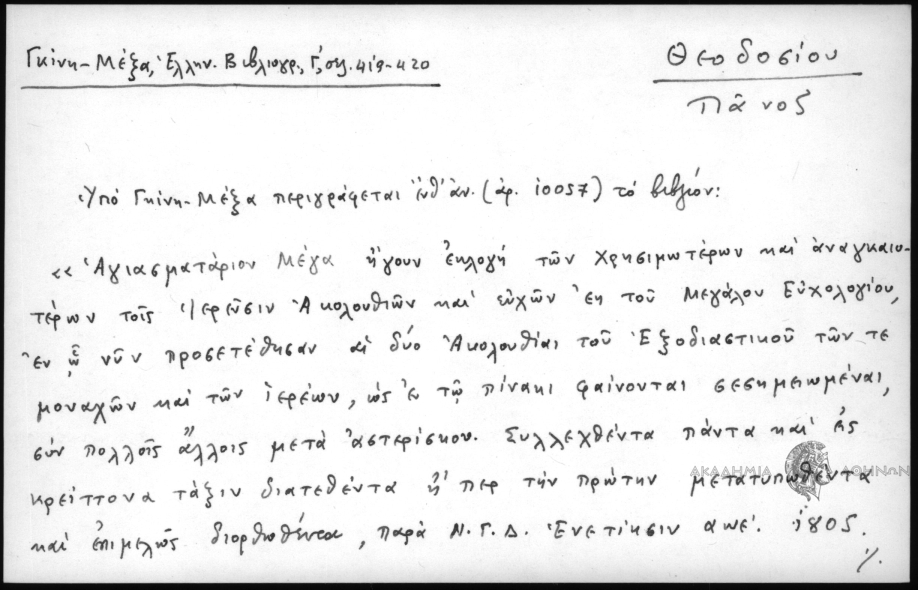 Γκίνη-Μέξα, Ἑλλην. Βιβλιογρ., Γ, σσ. 419-420
Θεοδοσίου
Πᾶνος
Ὑπό Γκίνη-Μέξα περιγράφεται ἐνθ' ἀν. (ἀρ. 10057) τό βιβλίον:
«Ἁγιασματάριον Μέγα ἤγουν ἐκλογή τῶν χρησιμωτέρων καί ἀναγκαιο-
τέρων τοῖς Ἱερεῦσιν Ἀκολουθιῶν καί εὐχῶν ἐκ τοῦ Μεγάλου Εὐχολογίου,
ἐν ᾧ νῦν προσετέθησαν αἱ δύο Ἀκολουθίαι τοῦ Ἐξοδιαστικοῦ τῶν τε
μοναχῶν καί τῶν ἱερέων, ὡς ἐν τῷ πίνακι φαίνονται σεσημειωμέναι,
σύν πολλοῖς ἄλλοις μετά ἀστερίσκου. Συλλεχθέντα πάντα καί εἰς
κρείττονα τάξιν διατεθέντα ἤ περ τήν πρώτην μετατυπωθέντα
καί ἐπιμελῶς διορθωθέντα, παρά Ν. Γ. Δ. Ἐνετίησιν αωε΄. 1805.
·/.
ΑΚΑΔΗΜΙΑ ΑΘΗΝΩΝ